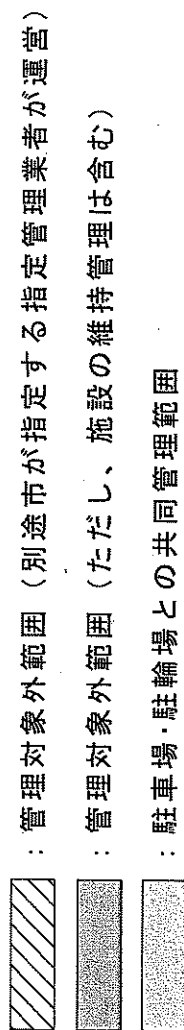 ：管理対象外範囲（別途市が指定する指定管理業者が運営）
：管理対象外範囲（ただし、施設の維持管理は含む）
：駐車場・駐輪場との共同管理範囲